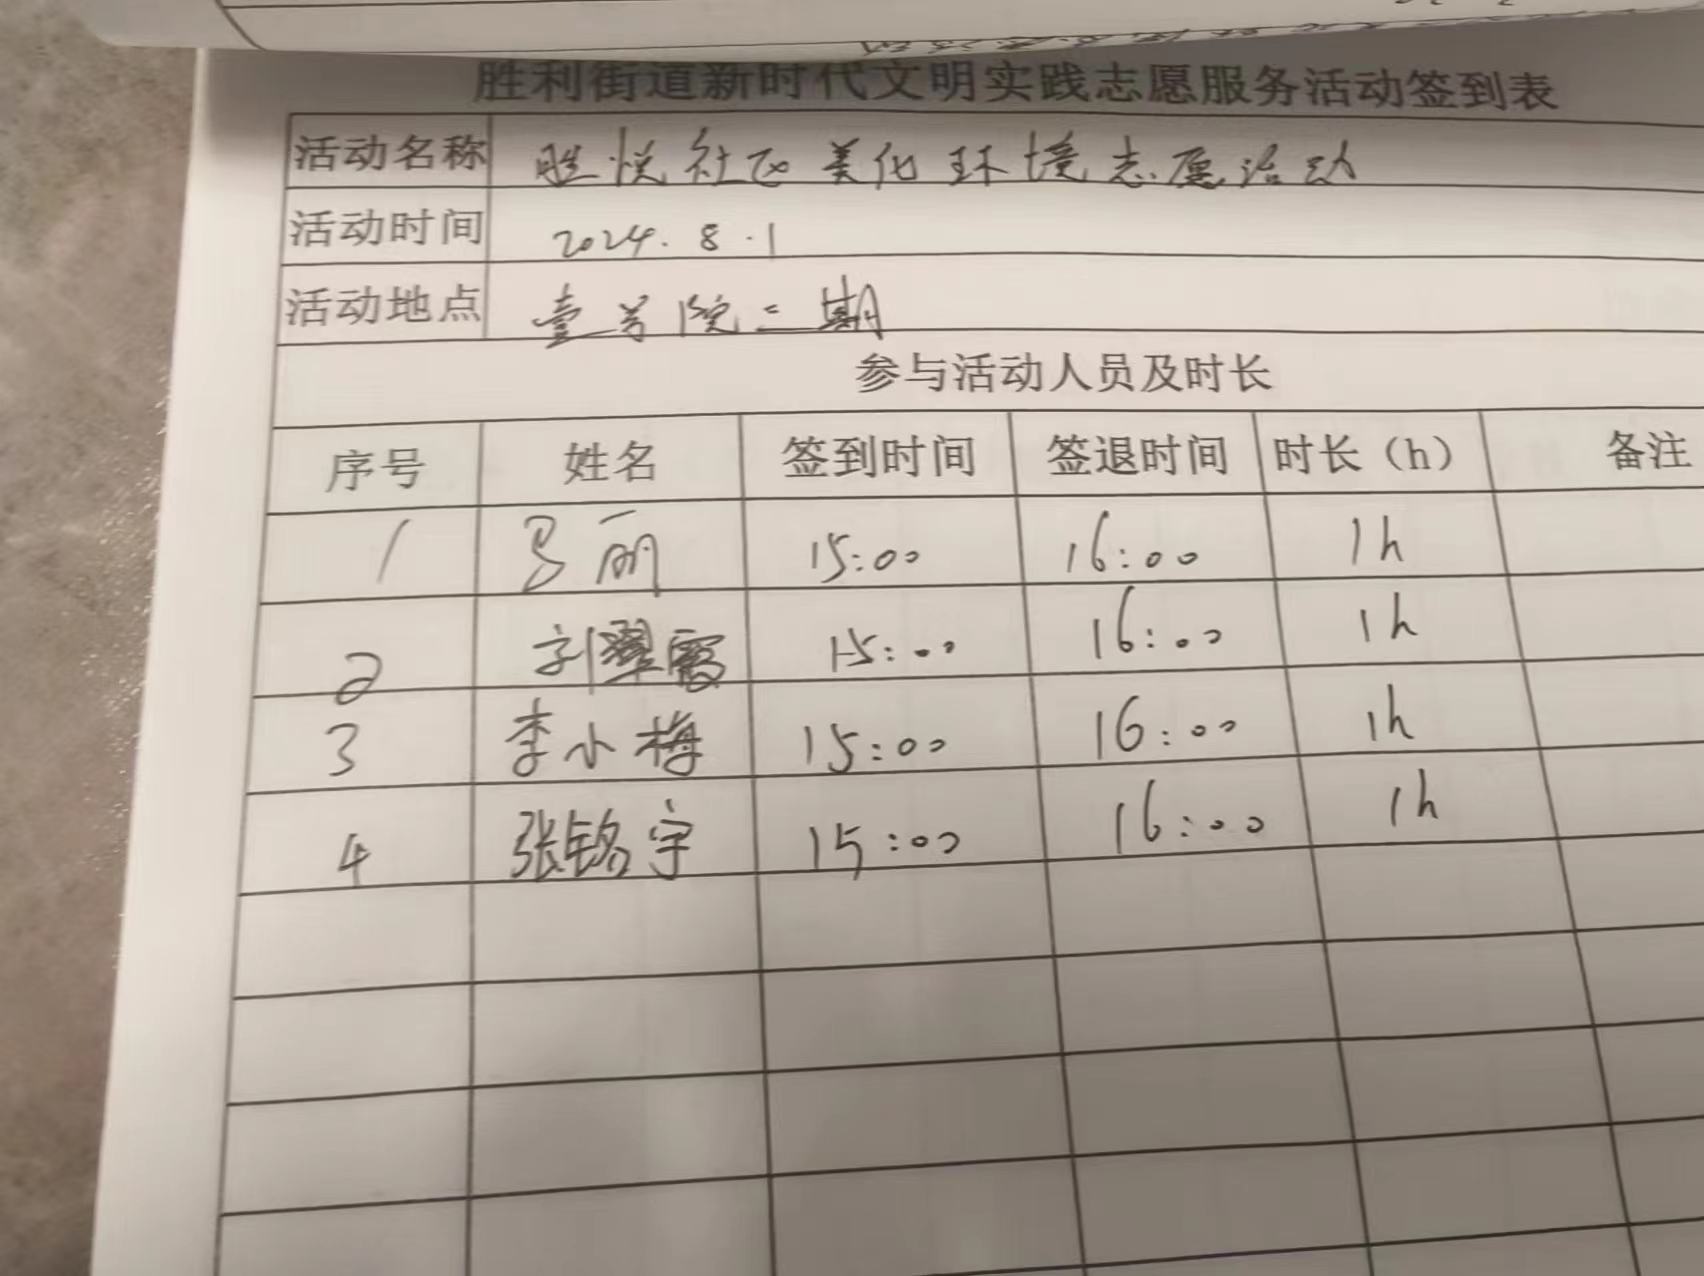 胜利街道新时代文明实践志愿服务活动签到表
活动名称 胜悦社区美化环境志愿活动
活动时间 2024.8.1
活动地点 壹号院二期
参与活动人员及时长
序号 姓名 签到时间 签退时间 时长（h） 备注
1 马丽 15:00 16:00 1h
2 刘翠霞 15:00 16:00 1h
3 李小梅 15:00 16:00 1h
4 张铭宇 15:00 16:00 1h